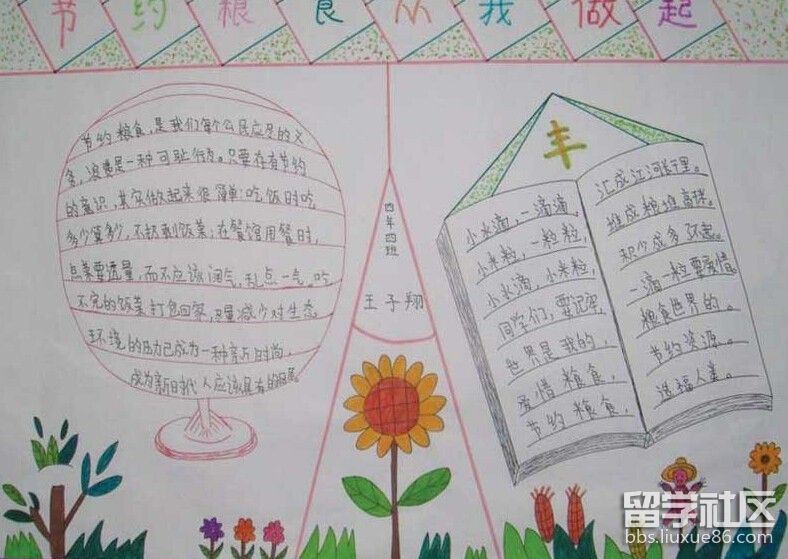 节约粮食从我做起
节约粮食,是我们每个公民应尽的义
务,浪费是一种可耻行为。只要存有节约
的意识,其实做起来很简单:吃饭时吃
多少算多少,不扔剩饭菜;在餐馆用餐时,
点菜要适量,而不应该阔气,乱点一气。吃
不完的饭菜打包回家,尽量减少对生态
环境的压力已成为一种育人时尚,
成为新时代人应该具有的
四年四班
王子翔
丰
小水滴,一滴滴,
小米粒,一粒粒,
小水滴,小米粒,
同学们,要记牢,
世界是我的,
爱惜粮食,
节约粮食,
汇成江河
堆成粮堆
积少成多
一滴一粒要爱惜。
粮食世界的。
节约资源。
造福人类。
留学社区
bbs.liuxue86.com